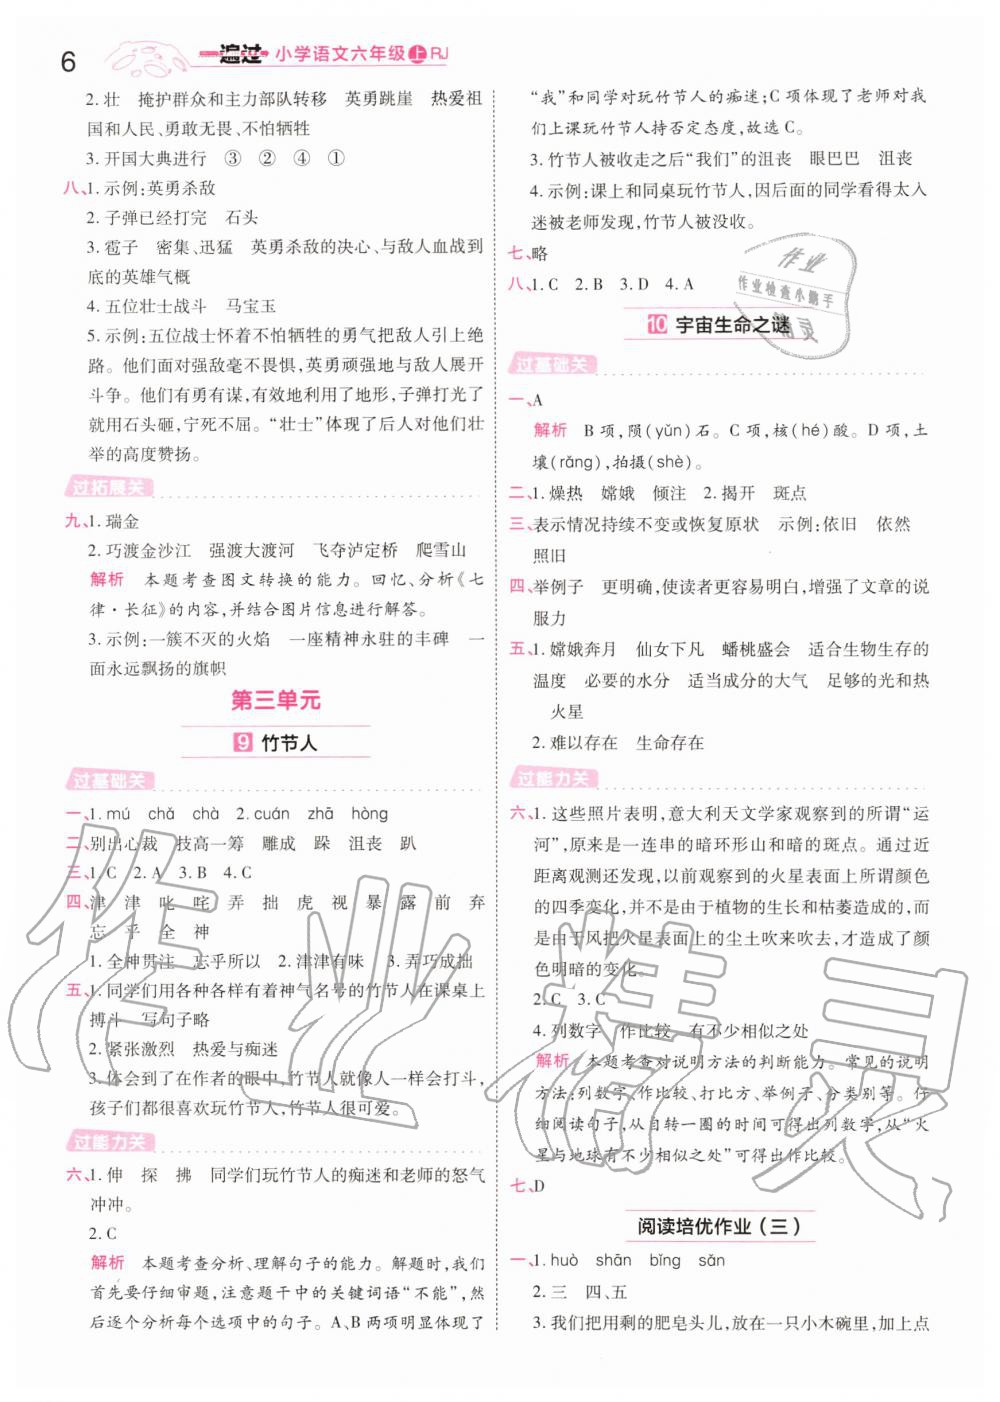 6
一遍过 小学语文六年级 上 RJ
2. 壮　掩护群众和主力部队转移　英勇跳崖　热爱祖
国和人民、勇敢无畏、不怕牺牲
3. 开国大典进行　③　②　④　①
八、1. 示例:英勇杀敌
2. 子弹已经打完　石头
3. 雹子　密集、迅猛　英勇杀敌的决心、与敌人血战到
底的英雄气概
4. 五位壮士战斗　马宝玉
5. 示例:五位战士怀着不怕牺牲的勇气把敌人引上绝
路。他们面对强敌毫不畏惧,英勇顽强地与敌人展开
斗争。他们有勇有谋,有效地利用了地形,子弹打光了
就用石头砸,宁死不屈。“壮士”体现了后人对他们壮
举的高度赞扬。
过拓展关
九、1. 瑞金
2. 巧渡金沙江　强渡大渡河　飞夺泸定桥　爬雪山
解析　本题考查图文转换的能力。回忆、分析《七
律·长征》的内容,并结合图片信息进行解答。
3. 示例:一簇不灭的火焰　一座精神永驻的丰碑　一
面永远飘扬的旗帜
第三单元
9 竹节人
过基础关
一、1. mú　chǎ　chà　2. cuán　zhā　hòng
二、别出心裁　技高一筹　雕成　跺　沮丧　趴
三、1. C　2. A　3. B　4. C
四、津　津　叱　咤　弄　拙　虎　视　暴　露　前　弃
忘　乎　全　神
1. 全神贯注　忘乎所以　2. 津津有味　3. 弄巧成拙
五、1. 同学们用各种各样有着神气名号的竹节人在课桌上
搏斗　写句子略
2. 紧张激烈　热爱与痴迷
3. 体会到了在作者的眼中,竹节人就像人一样会打斗,
孩子们都很喜欢玩竹节人,竹节人很可爱。
过能力关
六、1. 伸　探　拂　同学们玩竹节人的痴迷和老师的怒气
冲冲。
2. C
解析　本题考查分析、理解句子的能力。解题时,我们
首先要仔细审题,注意题干中的关键词语“不能”,然
后逐个分析每个选项中的句子。A、B 两项明显体现了
“我”和同学对玩竹节人的痴迷;C 项体现了老师对我
们上课玩竹节人持否定态度,故选 C。
3. 竹节人被收走之后“我们”的沮丧　眼巴巴　沮丧
4. 示例:课上和同桌玩竹节人,因后面的同学看得太入
迷被老师发现,竹节人被没收。
七、略
八、1. C　2. B　3. D　4. A
10 宇宙生命之谜
过基础关
一、A
解析　B 项,陨(yǔn)石。C 项,核(hé)酸。D 项,土
壤(rǎng),拍摄(shè)。
二、1. 燥热　嫦娥　倾注　2. 揭开　斑点
三、表示情况持续不变或恢复原状　示例:依旧　依然
照旧
四、举例子　更明确,使读者更容易明白,增强了文章的说
服力
五、1. 嫦娥奔月　仙女下凡　蟠桃盛会　适合生物生存的
温度　必要的水分　适当成分的大气　足够的光和热
火星
2. 难以存在　生命存在
过能力关
六、1. 这些照片表明,意大利天文学家观察到的所谓“运
河”,原来是一连串的暗环形山和暗的斑点。通过近
距离观测还发现,以前观察到的火星表面上所谓颜色
的四季变化,并不是由于植物的生长和枯萎造成的,而
是由于风把火星表面上的尘土吹来吹去,才造成了颜
色明暗的变化。
2. C　3. C
4. 列数字　作比较　有不少相似之处
解析　本题考查对说明方法的判断能力。常见的说明
方法:列数字、作比较、打比方、举例子、分类别等。仔
细阅读句子,从自转一圈的时间可得出列数字,从“火
星与地球有不少相似之处”可得出作比较。
七、D
阅读培优作业(三)
一、1. huò　shān　bǐng　sǎn
2. 三　四、五
3. 我们把用剩的肥皂头儿,放在一只小木碗里,加上点
作业
作业检查小能手
精灵
作业精灵